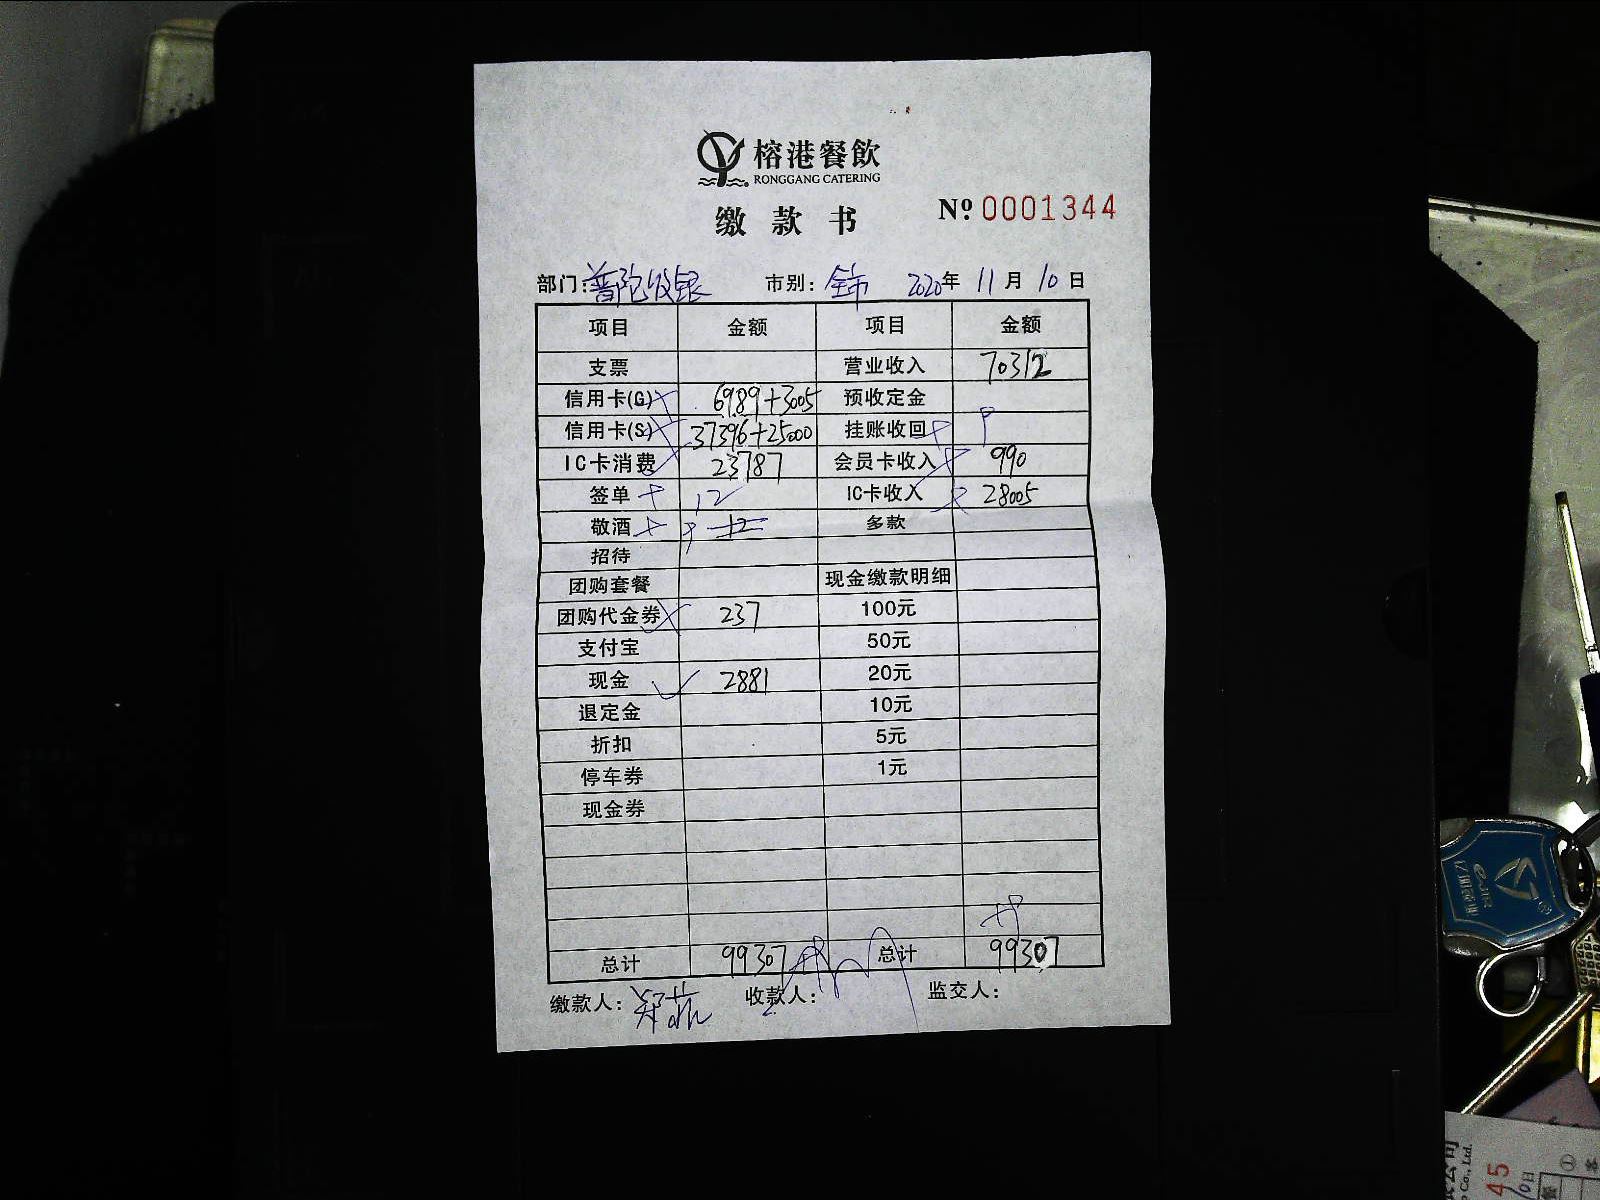 榕港餐飲
RONGGANG CATERING
缴款书
№ 0001344
部门:普陀收银 市别:全市 2020年 11月 10日
项目 金额 项目 金额
支票 营业收入 70312
信用卡(G) 6989+3005 预收定金
信用卡(S) 37396+25000 挂账收回
IC卡消费 23787 会员卡收入 990
签单 12 IC卡收入 28005
敬酒 12 多款
招待
团购套餐 现金缴款明细
团购代金券 237 100元
支付宝 50元
现金 2881 20元
退定金 10元
折扣 5元
停车券 1元
现金券
总计 99307 总计 99307
缴款人: 收款人: 监交人:
亿班商驰
Co., Ltd.
45